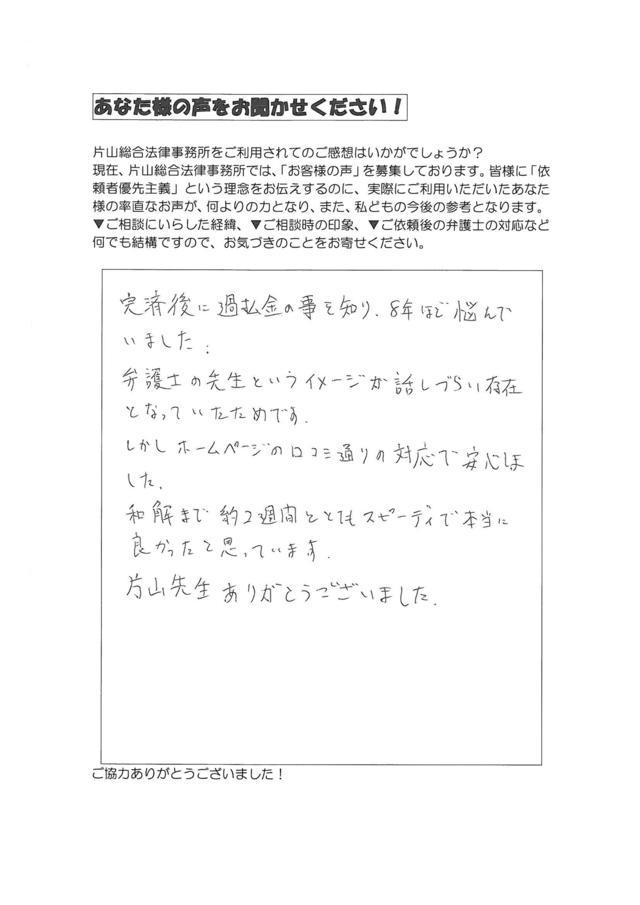 あなた様の声をお聞かせください！
片山総合法律事務所をご利用されてのご感想はいかがでしょうか？
現在、片山総合法律事務所では、「お客様の声」を募集しております。皆様に「依
頼者優先主義」という理念をお伝えするのに、実際にご利用いただいたあなた
様の率直なお声が、何よりの力となり、また、私どもの今後の参考となります。
▼ご相談にいらした経緯、▼ご相談時の印象、▼ご依頼後の弁護士の対応など
何でも結構ですので、お気づきのことをお寄せください。
完済後に過払金の事を知り、8年ほど悩んで
いました.
弁護士の先生というイメージが話しづらい存在
となっていたためです.
しかしホームページの口コミ通りの対応で安心しま
した.
和解まで約2週間ととてもスピーディで本当に
良かったと思っています.
片山先生ありがとうございました.
ご協力ありがとうございました！